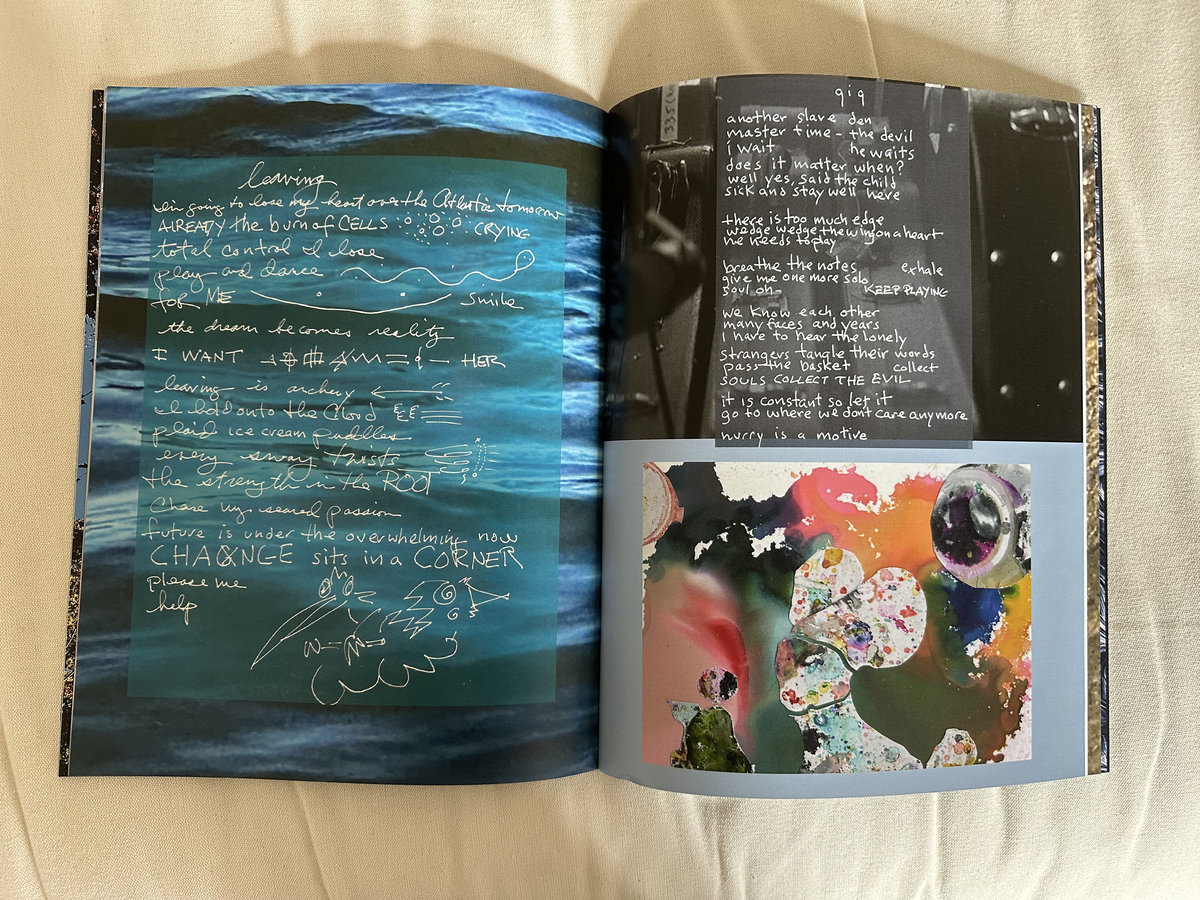 leaving
I'm going to lose my heart over the Atlantic tomorrow
ALREADY the burn of CELLS CRYING
total control I lose
play and dance
for ME smile
the dream becomes reality
I WANT HER
leaving is archery
I hold onto the Cloud
plaid ice cream puddles
every sway twists
the strength in the ROOT
Chase my seared passion
future is under the overwhelming now
CHAXNGE sits in a CORNER
please me
help
gig
another slave den
master time - the devil
i wait he waits
does it matter when?
well yes, said the child
sick and stay well here
there is too much edge
wedge wedge the wing on a heart
he needs to play
breathe the notes exhale
give me one more solo
soul on- KEEP PLAYING
we know each other
many faces and years
I have to hear the lonely
strangers tangle their words
pass the basket collect
SOULS COLLECT THE EVIL
it is constant so let it
go to where we don't care anymore
hurry is a motive